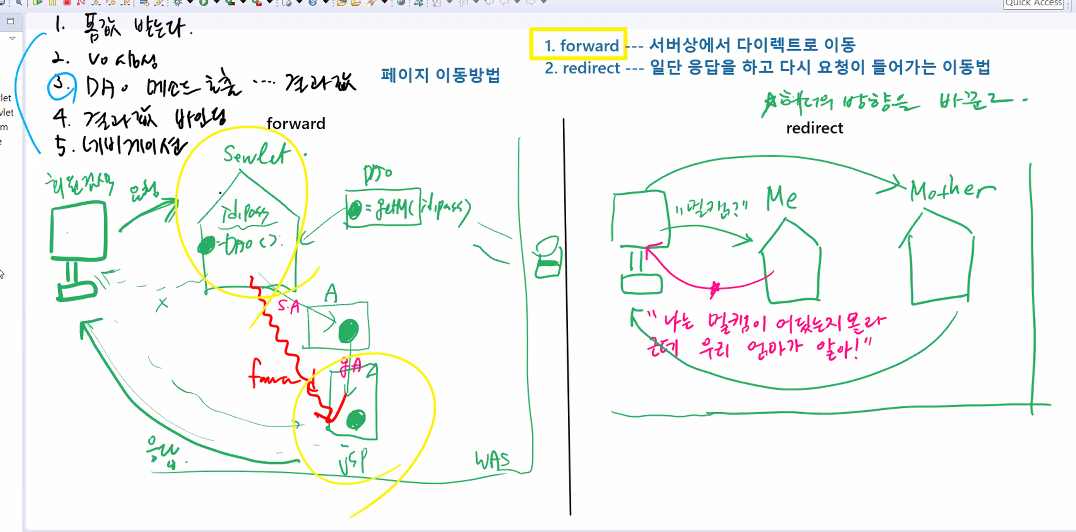 Quick Access
1. 폼값 받는다.
2. VO 생성
3. DAO 메소드 호출 ···· 결과값
4. 결과값 바인딩
5. 네비게이션
페이지 이동방법
1. forward --- 서버상에서 다이렉트로 이동
2. redirect --- 일단 응답을 하고 다시 요청이 들어가는 이동법
헤더의 방향을 바꾼다.
forward
redirect
Servlet
회원검색
요청
id,pass
=DAO().
DAO
=getM(id,pass)
S.A
A
gA
forward
JSP
응답
WAS
"멀캠?"
Me
Mother
"나는 멀캠이 어딨는지 몰라
근데 우리 엄마가 알아!"